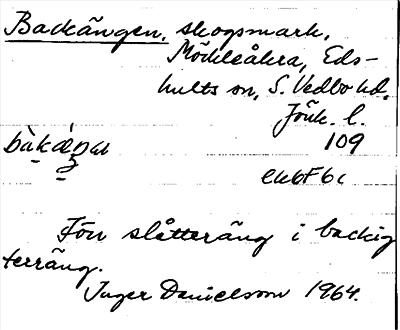 Backängen, skogsmark,
Möckleåkra, Eds-
hults sn, S. Vedbo hd.
Jönk. l.
109
ek6F6c
Förr slåtteräng i backig
terräng.
Inger Danielsson 1964.